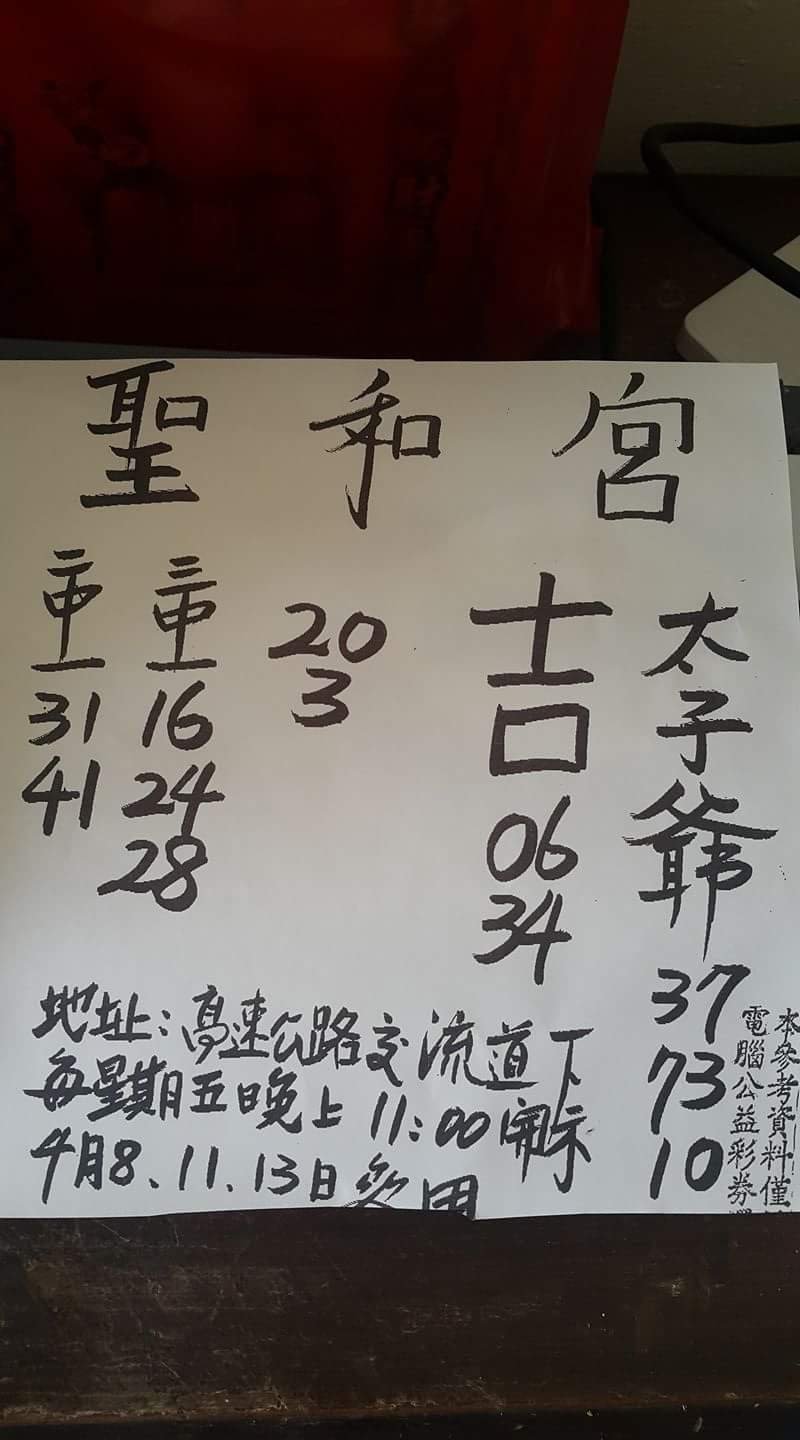 聖和宮
太子爺
37
73
10
吉
06
34
20
3
三重
16
24
28
二重
31
41
地址：高速公路交流道下
每星期五晚上11:00開示
4月8、11、13日
本參考資料僅
電腦公益彩券